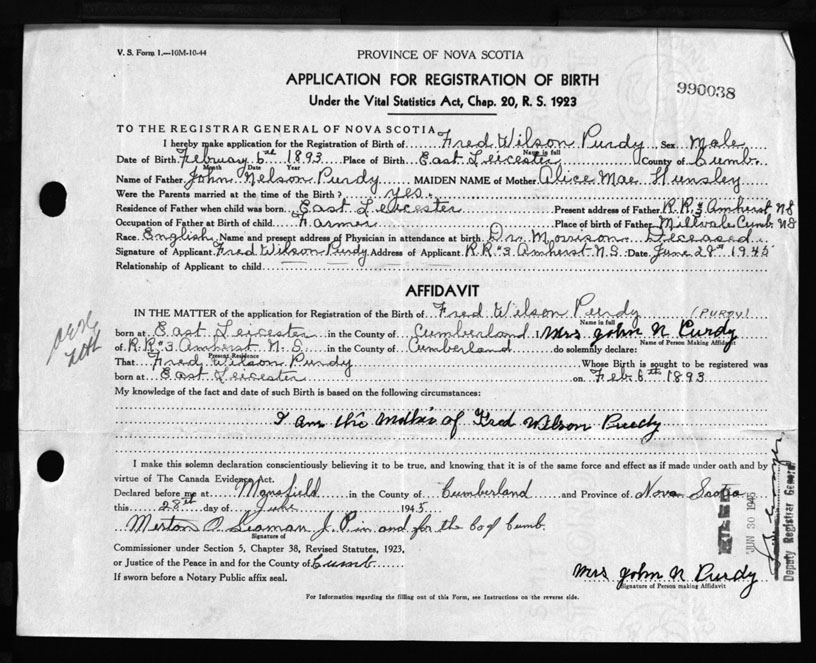 V. S. Form 1.—10M-10-44
PROVINCE OF NOVA SCOTIA
APPLICATION FOR REGISTRATION OF BIRTH
990038
Under the Vital Statistics Act, Chap. 20, R. S. 1923
TO THE REGISTRAR GENERAL OF NOVA SCOTIA
I hereby make application for the Registration of Birth of Fred Wilson Purdy Sex Male
Name in full
Date of Birth February 6th 1893 Place of Birth East Leicester County of Cumb.
Month Date Year
Name of Father John Nelson Purdy MAIDEN NAME of Mother Alice Mae Hunsley
Were the Parents married at the time of the Birth? yes.
Residence of Father when child was born East Leicester Present address of Father R.R. 3 Amherst NS
Occupation of Father at Birth of child Farmer Place of birth of Father Millvale Cumb NS
Race English Name and present address of Physician in attendance at birth Dr. Morrison Deceased
Signature of Applicant Fred Wilson Purdy Address of Applicant R.R. #3 Amherst N.S. Date June 28th 1945
Relationship of Applicant to child
AFFIDAVIT
IN THE MATTER of the application for Registration of the Birth of Fred Wilson Purdy (PURDY)
Name in full
born at East Leicester in the County of Cumberland I Mrs John N Purdy
Name of Person Making Affidavit
of R.R. #3 Amherst N.S. in the County of Cumberland do solemnly declare:
Present Residence
That Fred Wilson Purdy Whose Birth is sought to be registered was
born at East Leicester on Feb 6th 1893
My knowledge of the fact and date of such Birth is based on the following circumstances:
I am the Mother of Fred Wilson Purdy
I make this solemn declaration conscientiously believing it to be true, and knowing that it is of the same force and effect as if made under oath and by
virtue of The Canada Evidence Act.
Declared before me at Mansfield in the County of Cumberland and Province of Nova Scotia
this 28th day of June 1945
Merton O. Seaman J.P. in and for the Co of Cumb.
Signature of
Commissioner under Section 5, Chapter 38, Revised Statutes, 1923,
or Justice of the Peace in and for the County of Cumb
If sworn before a Notary Public affix seal.
JUN 30 1945
Deputy Registrar General
Mrs John N Purdy
Signature of Person making Affidavit
For Information regarding the filling out of this Form, see Instructions on the reverse side.